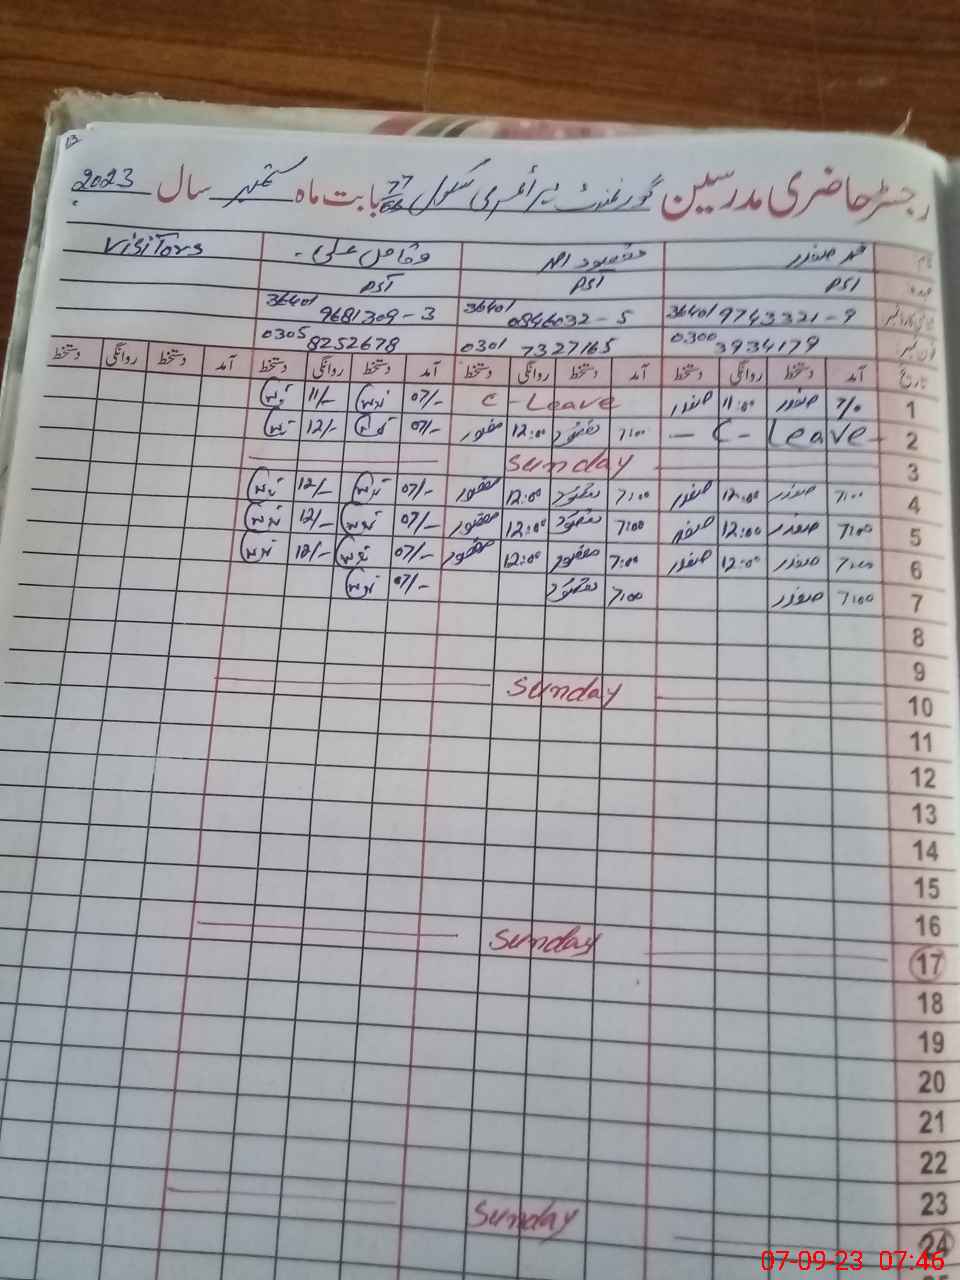 13
رجسٹر حاضری مدرسین گورنمنٹ پرائمری سکول 77/66 بابت ماہ ستمبر سال 2023
نام محمد صفدر مقصود احمد وقاص علی Visitors
عہدہ PST PST PST
36401 9743321-9 36401 0846032-5 36401 9681309-3
فون نمبر 0300 3934179 0301 7327165 0305 8252678
تاریخ آمد دستخط روانگی دستخط آمد دستخط روانگی دستخط آمد دستخط روانگی دستخط آمد دستخط روانگی دستخط
1 7/0 صفدر 11:00 صفدر C-Leave 07/- 11/-
2 - C - Leave - 7:00 مقصود 12:00 مقصود 07/- 12/-
3 Sunday
4 7:00 صفدر 12:00 صفدر 7:00 مقصود 12:00 مقصود 07/- 12/-
5 7:00 صفدر 12:00 صفدر 7:00 مقصود 12:00 مقصود 07/- 12/-
6 7:00 صفدر 12:00 صفدر 7:00 مقصود 12:00 مقصود 07/- 12/-
7 7:00 صفدر 7:00 مقصود 07/-
8
9
10 Sunday
11
12
13
14
15
16
17 Sunday
18
19
20
21
22
23
24 Sunday
07-09-23 07:46